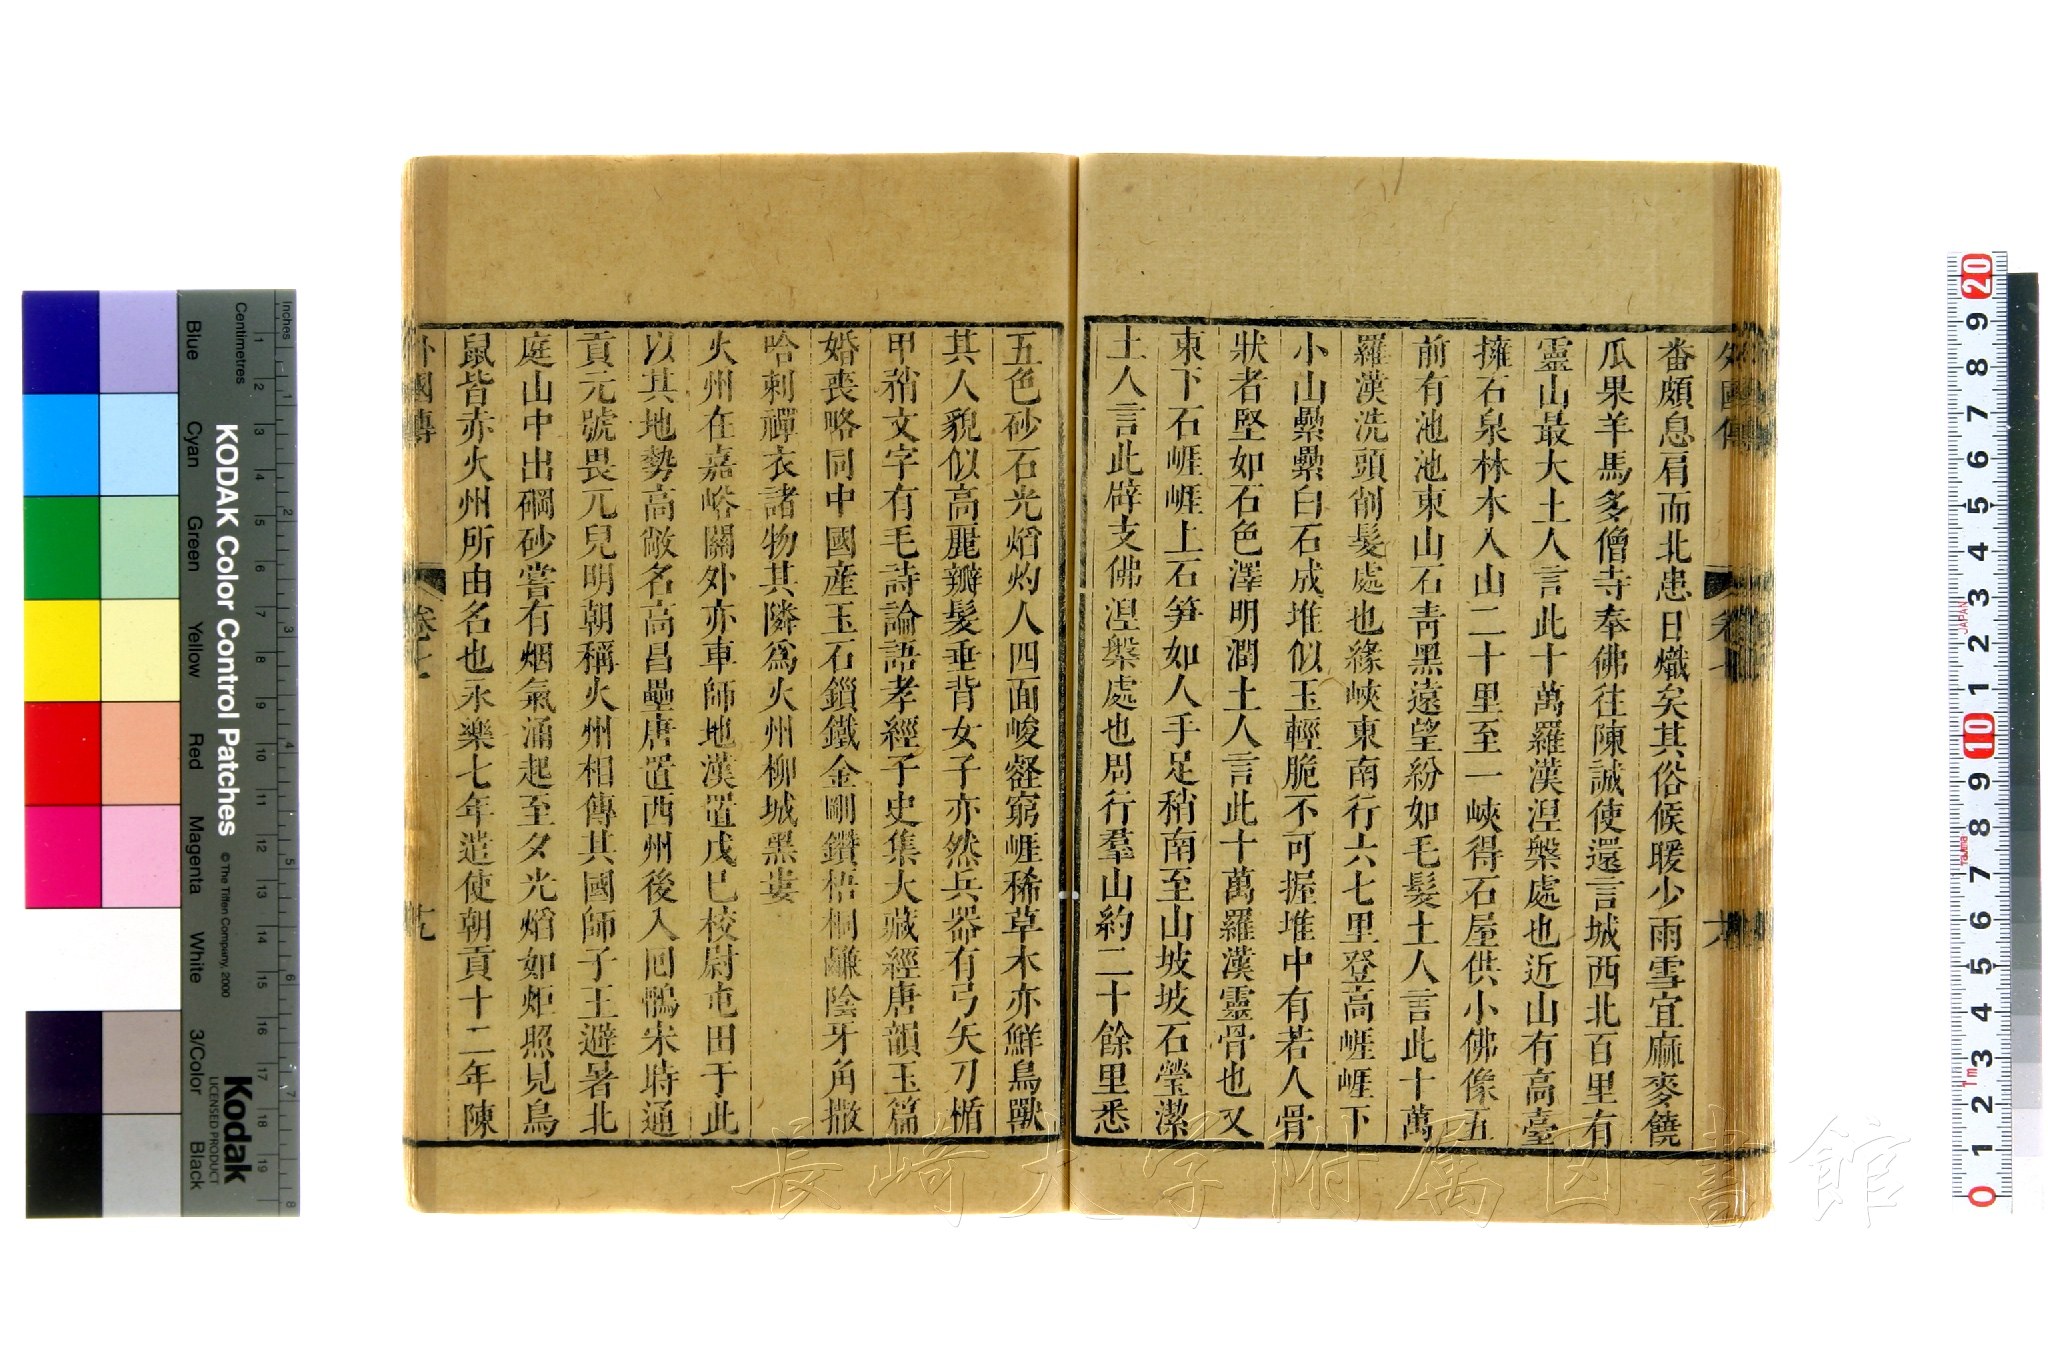 外國傳
卷七
番頗息肩而北患日熾矣其俗候暖少雨雪宜麻麥饒
瓜果羊馬多僧寺奉佛往陳誠使還言城西北百里有
靈山最大土人言此十萬羅漢涅槃處也近山有高臺
擁石泉林木入山二十里至一峽得石屋供小佛像五
前有池池東山石靑黑遠望紛如毛髮土人言此十萬
羅漢洗頭削髮處也緣峽東南行六七里登高崕崕下
小山纍纍白石成堆似玉輕脆不可握堆中有若人骨
狀者堅如石色澤明潤土人言此十萬羅漢靈骨也又
東下石崕崕上石笋如人手足稍南至山坡坡石瑩潔
土人言此辟支佛涅槃處也周行羣山約二十餘里悉
五色砂石光熖灼人四面峻壑窮崕稀草木亦鮮鳥獸
其人貌似高麗辮髮垂背女子亦然兵器有弓矢刀楯
甲矟文字有毛詩論語孝經子史集大藏經唐韻玉篇
婚喪略同中國產玉石鎖鐵金剛鑽梧桐鹻陰牙角撒
哈剌禪衣諸物其隣爲火州柳城黑婁
火州在嘉峪關外亦車師地漢置戊巳校尉屯田于此
以其地勢高敞名高昌壘唐置西州後入回鶻宋時通
貢元號畏兀兒明朝稱火州相傳其國師子王避暑北
庭山中出硇砂嘗有烟氣涌起至夕光熖如炬照見鳥
鼠皆赤火州所由名也永樂七年遣使朝貢十二年陳
外國傳
卷七
十九
KODAK Color Control Patches
© The Tiffen Company, 2000
Kodak
LICENSED PRODUCT
Inches
Centimetres
Blue Cyan Green Yellow Red Magenta White 3/Color Black
1 2 3 4 5 6 7 8 9 10 11 12 13 14 15 16 17 18 19
1 2 3 4 5 6 7 8
20 9 8 7 6 5 4 3 2 1 10 9 8 7 6 5 4 3 2 1 0
JAPAN
Tajima
1m
長崎大学附属図書館